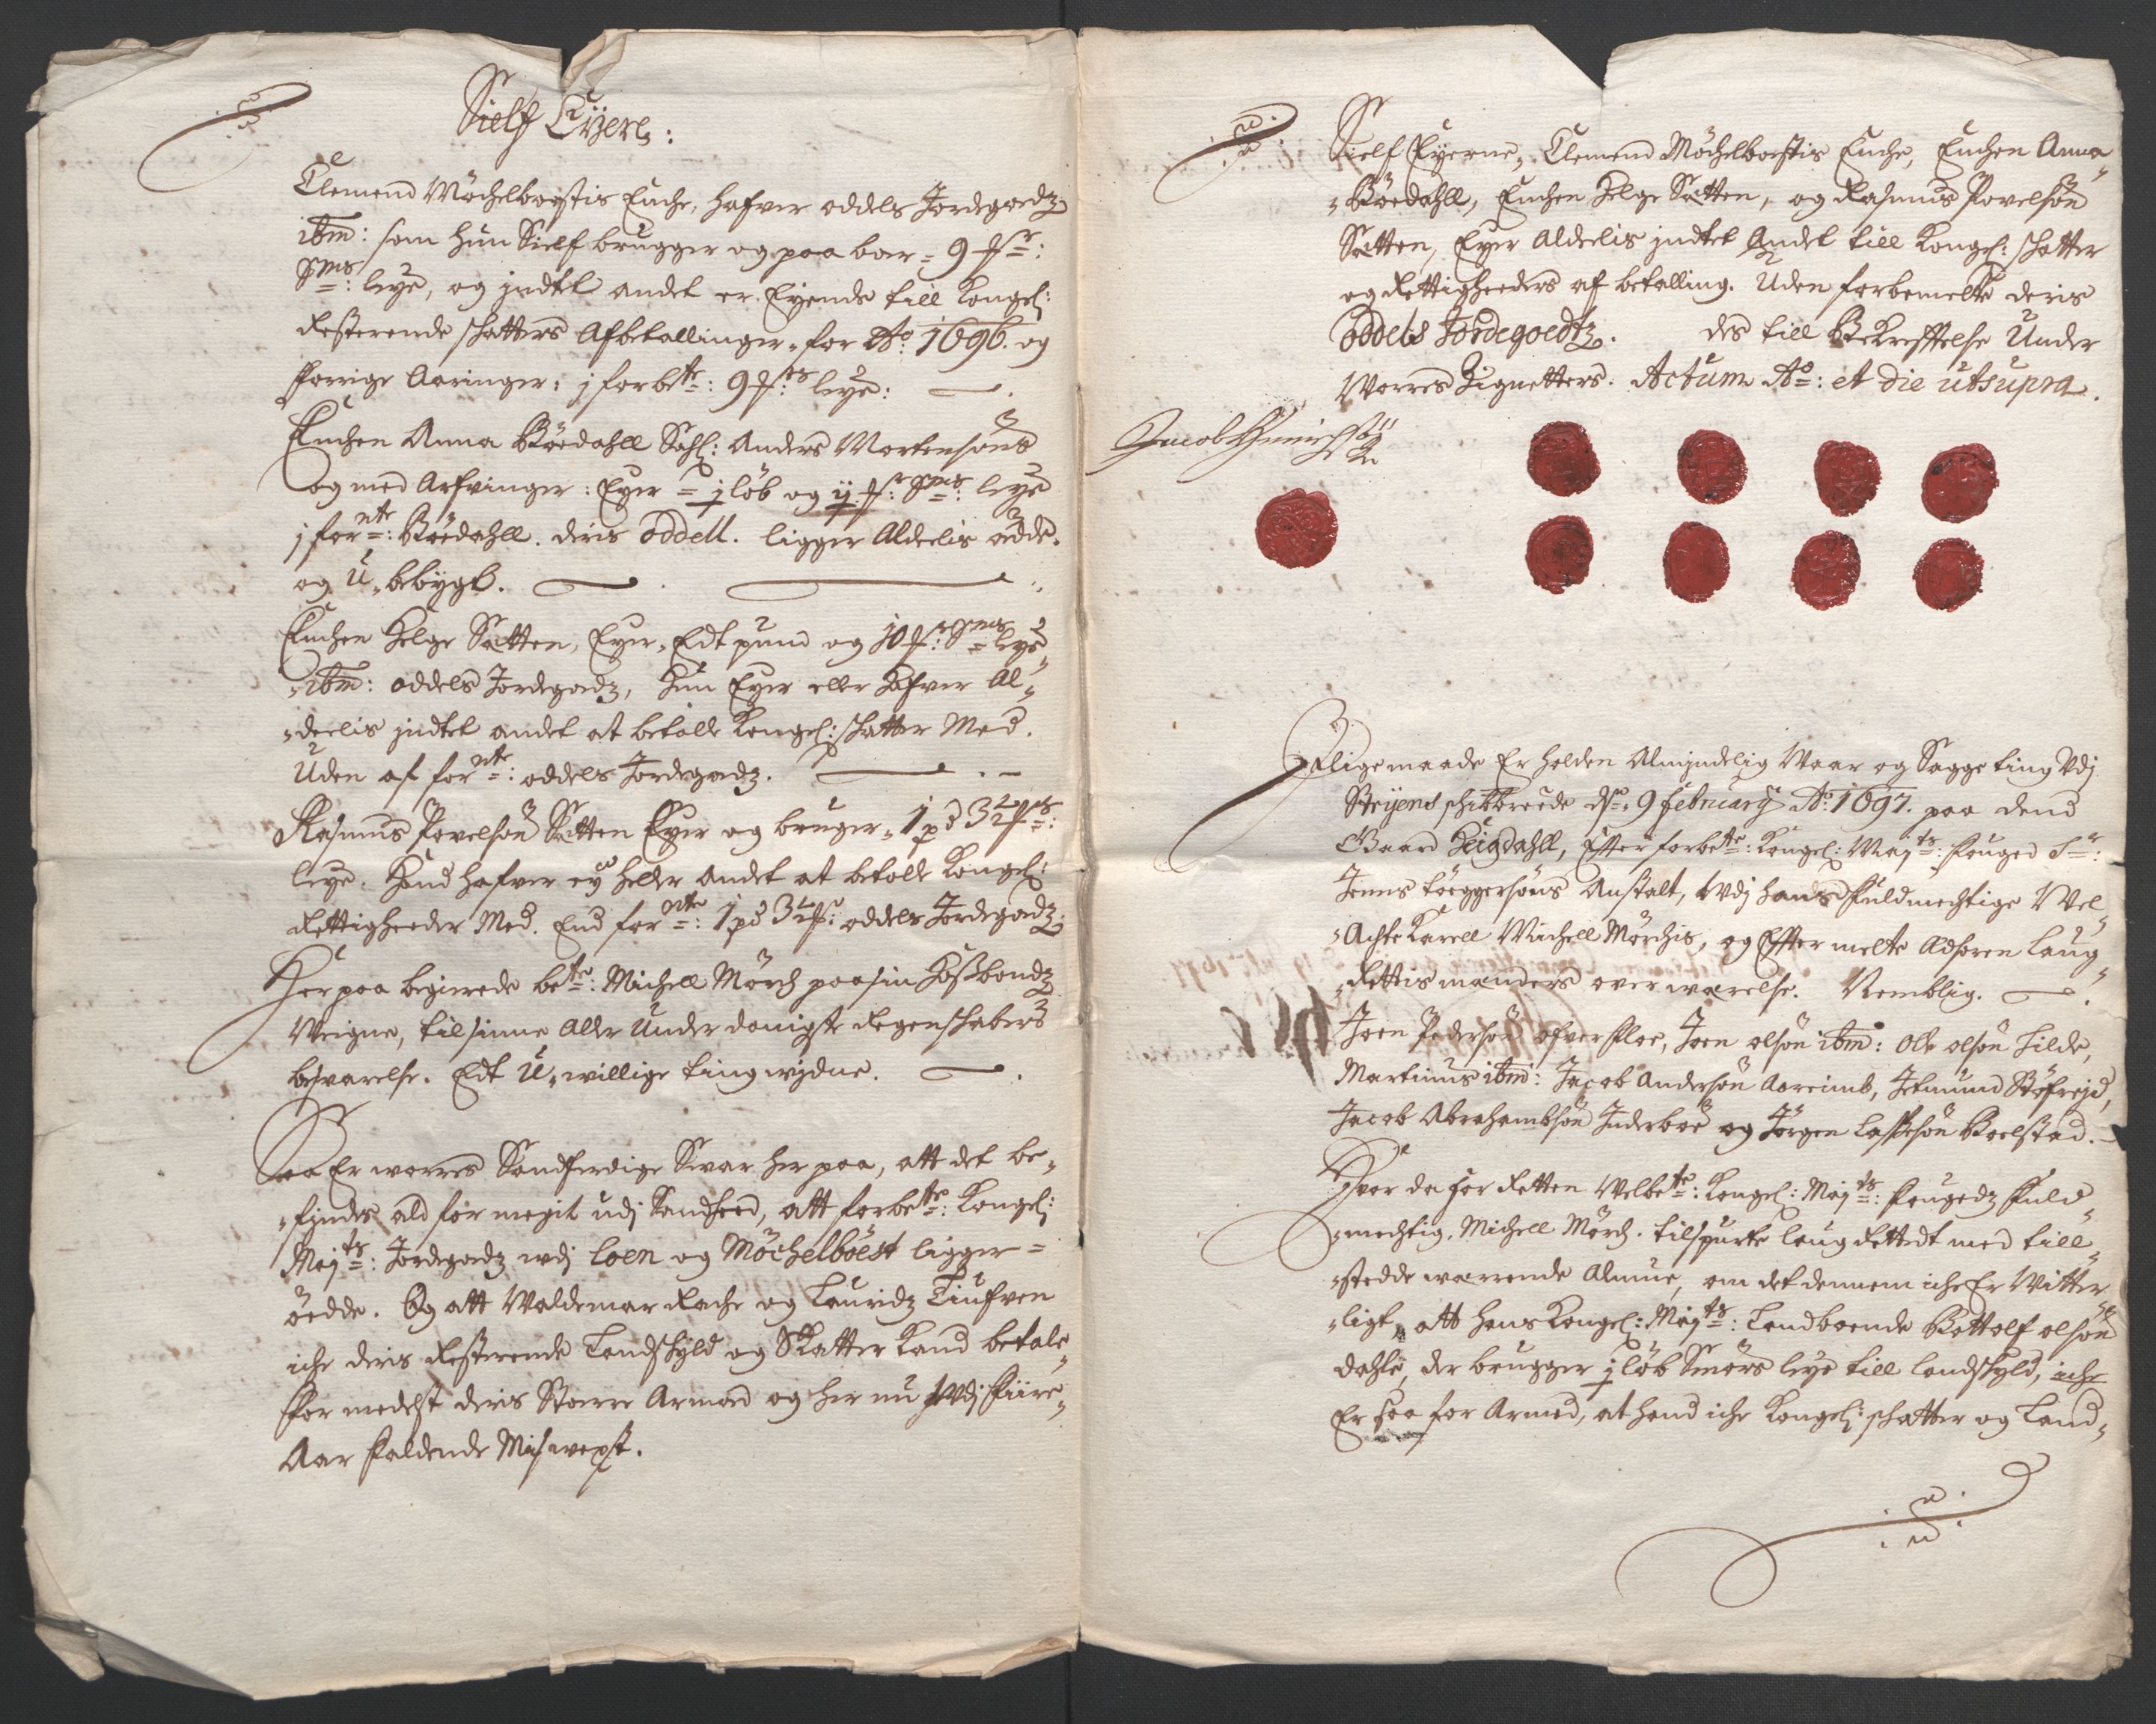 Sielf Eyere:
Clemend Möchelboestis Enche, hafver oddels Jordegodz
ibm: som hun Sielf brugger og paa boer = 9 
SmS: leye, og indtet andet er Eyende till Kongel:
Resterende schatters Afbetallinger, for Ao: 1696. og
forrige Aaringer: j forbete: 9 leye:
Enchen Anna Böedahll Sahl: Anders Mortensöns
og med Arfvinger: Eyer = j löb og ij Sms: leye
j fornte: Böedahll. deris oddell. ligger Aldeelis ödde.
og U,bebygt.
Enchen Helge Sætten, Eyer, Edt pund og 10 Sms leye
ibm: oddels Jordegodz, Hun Eyer eller Hafver Al,,
,,deelis indtet andet at betalle Kongel: schatter Med.
Uden af fornte: oddels Jordegodz.
Rasmus Povelsön Sætten Eyer og bruger, 1 pd 3½
leye. Hand hafver ey heller andet at betalle Kongel:
Rettigheeder Med. End fornte: 1 pd 3½ oddels Jordegodz.
Her paa begierede bete: Michell Mörch paa sin Hoßbondz
Veigne, til sinne Aller Under danigste Regenschabers
besvarelse. Edt U,willige tingwidne.
Saa Er worres Sandferdige Svar her paa, att det be,,
,,findes ald for megit udj Sandhed, att forbete: Kongel:
Mayts: Jordegodz udj Loen og Möchelböest ligger =
öedde. Og att Woldemar Rache og Lauridz Tiufven
iche deris Resterende Landschyld og Skatter kand betale,,
for medelst deris Stoere Armod og her nu Udj fiire,,
Aar faldende Miswext.
Sielf Eyerne, Clemend Möchelboestis Enche, Enchen Anna
,,Böedahll, Enchen Helge Sætten, og Rasmus Povelsön
Sætten, Eyer Aldeelis indtet Andet till Kongel: schatter
og Rettigheeders af betalling. Uden forbemelte deris
oddels Jordegoedtz. des till Bekrefftelse Under
Worres Zignetters. Actum Ao: et die ut supra.
Jacob
J lige maade Er holden Almindelig Waar og Sagge ting Udj
Strÿens schibbreede dend 9 february Ao: 1697. paa dend
Gaard Heigdahll, Effter forbete: Kongel: Mayts: fouged Sr:
Jenns Löeggersöns Anstalt, Udj hands fuldmechtige Wel,,
,,Achte Karell Michell Mörchis, og Effter melte Adsoren laug,,
,,Rettis mænders over wærelse. Nemblig.
Joen Pedersön ofver floe, Joen olsön ibm: Ole olsön Tilde,
Martinus ibm: Jacob Andersön Aareimb, Jetmund Stöfreyd,
Jacob Abrahambsön Inderboe og Jörgen Lassesön Boelstad.
Hvor da for Retten Welbete: Kongel: Mayts: fougedz fuld
,,mechtig. Michell Mörch. tilspurte laug Rettedt med till,,
,,stedde wærrende Almue, om det dennem iche Er Witter
,,ligt, att hans Kongel: Mayts: Landboende Bottolf olsön
dahle, der brugger j löb Smörs leye till landschyld, iche
Er saa for Armed, at hand iche Kongel: schatter og Land,,